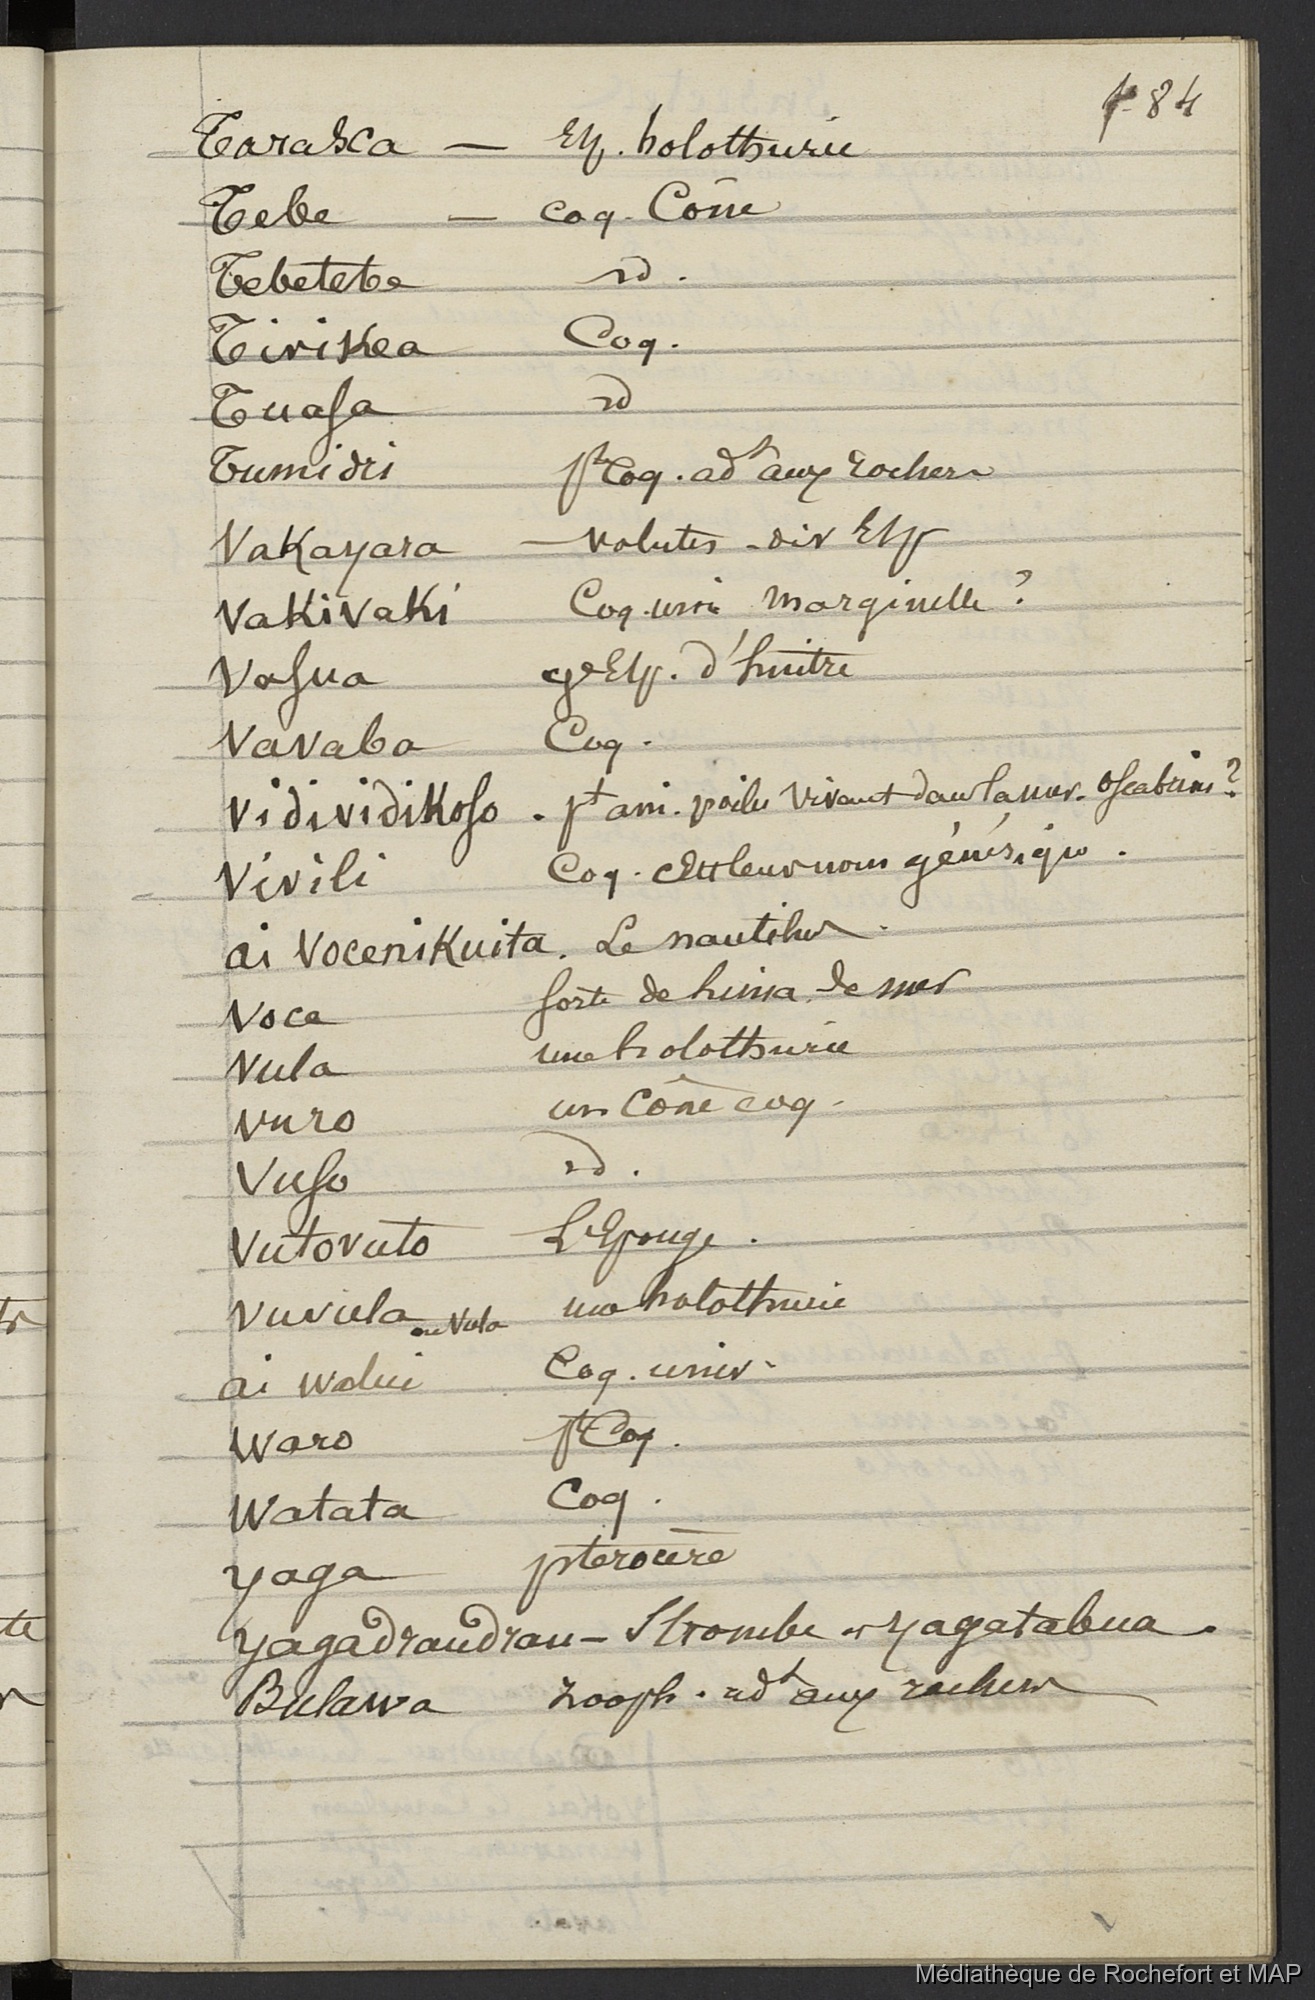 p. 84
Tarasea — Esp. holothurie
Tebe — coq. Cône
Tebetebe id.
Tirikea Coq.
Tuasa id
Tumidri pt Coq. adt aux rochers
Vakayara — volutes - div Esp
Vakivaki Coq. univ marginelle?
Vasua gde Esp. d'huitre
Vavaba Coq.
Vidividikoso . pt ani. poilu vivant dans la mer. Oscabrions?
Vivili Coq. C'est leur nom générique.
ai Vocenikuita. Le nautilus.
Voce sorte de de mer
Vula une holothurie
Vuro un Cône coq.
Vuso id.
Vutovuto L'Eponge.
Vuvula ou Vula une holothurie
ai Walui Coq. univ.
Waro pt Coq.
Watata Coq.
Yaga pterocère
Yagadraudrau — Strombe et Yagatabua.
Bulawa Zooph. adt aux rochers
Médiathèque de Rochefort et MAP